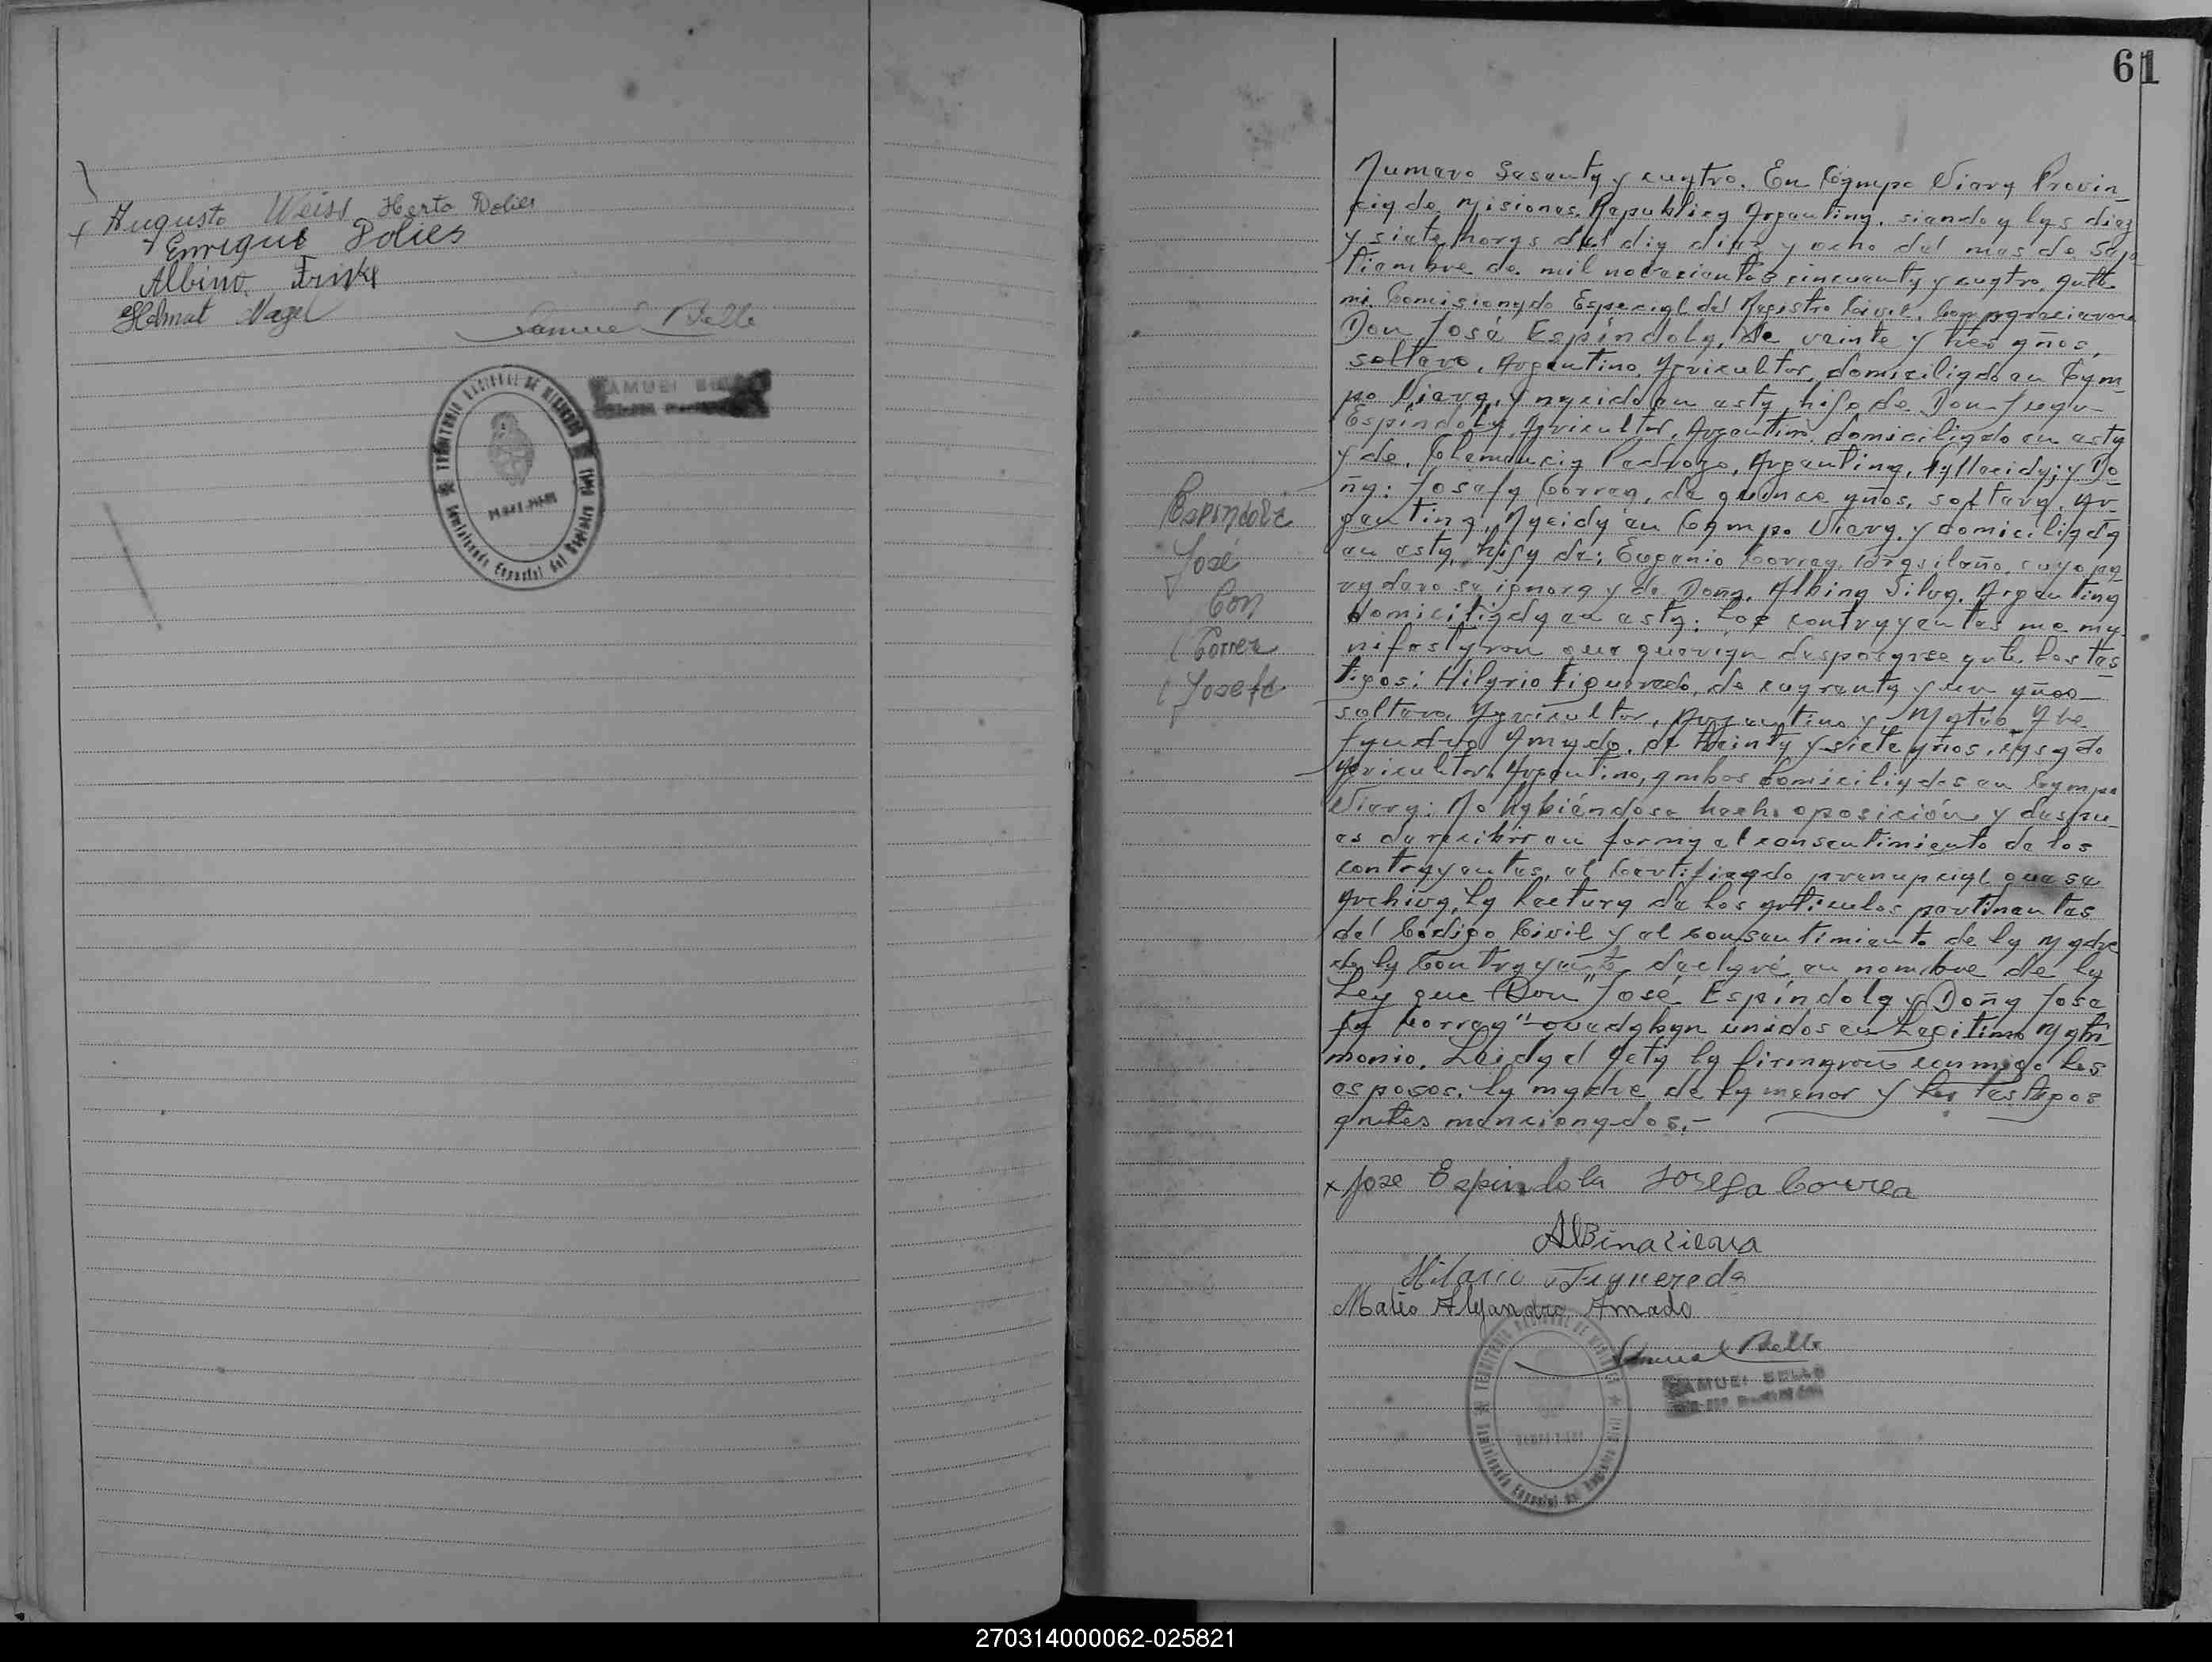 Augusto Weiss Herta Dolies
Enrigue Dolies
Albino Frike
Helmut Nagel
Samuel Bello
TERRITORIO NACIONAL DE MISIONES
Comisionado Especial del Registro Civil
SAMUEL BELLO
61
Numero Sesenta y cuatro. En Campo Viera Provin-
cia de Misiones, Republica Argentina, siendo a las diez
y siete horas del dia diez y ocho del mes de Sep-
tiembre de mil novecientos cincuenta y cuatro, ante
mi Comisionado Especial del Registro Civil, Comparecieron
Don José Espíndola, de veinte y tres años,
soltero, Argentino, Agricultor, domiciliado en Cam-
po Viera, y nacido en esta, hijo de Don Juan
Espíndola, Agricultor, Argentino, domiciliado en esta
y de Clemencia Pedrozo, Argentina, fallecida; y Do
ña: Josefa Correa, de quince años, soltera, Ar-
gentina, Nacida en Campo Viera, y domiciliada
en esta, hija de: Eugenio Correa, Brasileño, cuyo pa
radero se ignora y de Doña Albina Silva, Argentina
domiciliada en esta: Los contrayentes me ma
nifestaron que querian desposarse ante los tes
tigos: Hilario Figueredo, de cuarenta y un años
soltero, Agricultor, Argentino y Mateo Ale
jandro Amado, de treinta y siete años, casado
Agricultor, Argentino, ambos domiciliados en Campo
Viera: No habiéndose hecho oposición y despu-
es de recibir en forma el consentimiento de los
contrayentes, el Certificado prenupcial que se
Archiva, la lectura de los articulos pertinentes
del Codigo Civil y el consentimiento de la Madre
de la Contrayente declaré en nombre de la
Ley que Don "José Espíndola y Doña Jose
fa Correa" quedaban unidos en Legitimo Matri
monio. Leida el Acta la firmaron conmigo los
esposos, la madre de la menor y los testigos
antes mencionados.-
Espindola
José
Con
Correa
Josefa
x Jose Espindola Josefa Correa
Albina Silva
Hilario Figueredo
Mateo Alejandro Amado
Samuel Bello
TERRITORIO NACIONAL DE MISIONES
Comisionado Especial del Registro Civil
SAMUEL BELLO
270314000062-025821